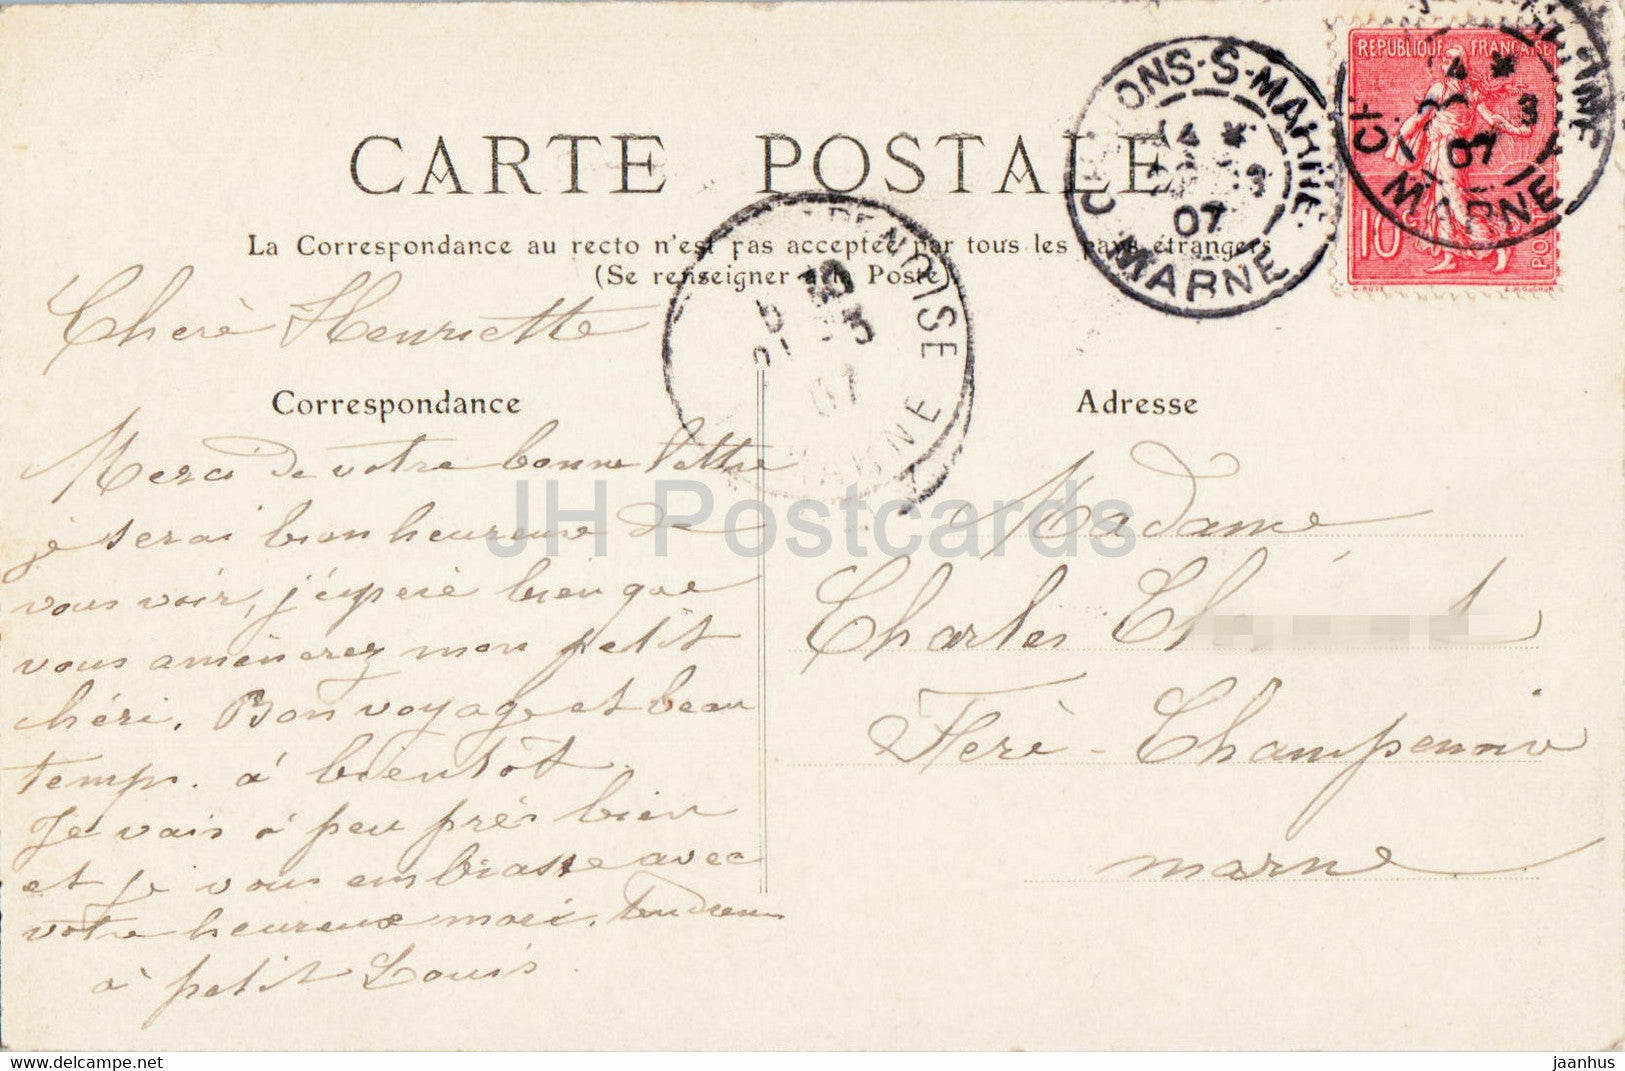 CARTE POSTALE
La Correspondance au recto n'est pas acceptée par tous les pays étrangers
(Se renseigner à la Poste)
REPUBLIQUE FRANÇAISE
10c
POSTES
CHALONS-S-MARNE
MARNE
07
CHALONS-S-MARNE
MARNE
07
NOISE
MARNE
07
Chère Henriette
Correspondance
Merci de votre bonne lettre
je serai bien heureuse de
vous voir, j'éspére bien que
vous amènerez mon petit
chéri. Bon voyage et beau
temps. à bientôt.
Je vais à peu près bien
et je vous embrasse avec
votre heureux mari.
à petit Louis
Adresse
Madame
Charles Ch
Fère-Champennoise
marne
JH Postcards
www.delcampe.net
jaanhus